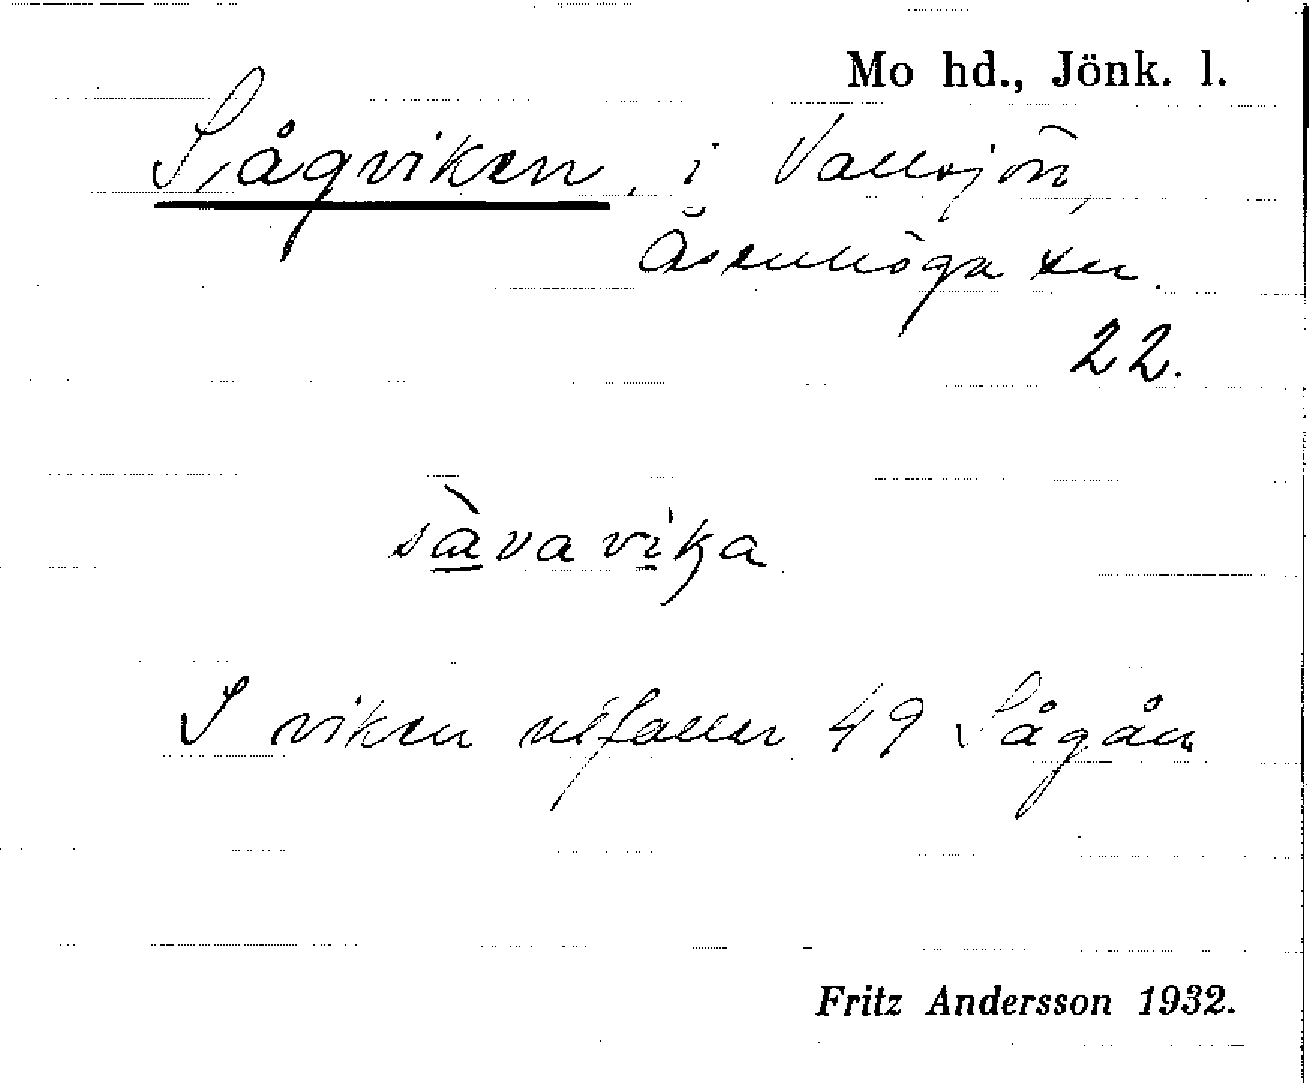 Mo hd., Jönk. l.
Sågviken, i Vallsjön,
Åsenhöga sn.
22.
sàvavika
I viken utfaller 49 Sågån
Fritz Andersson 1932.